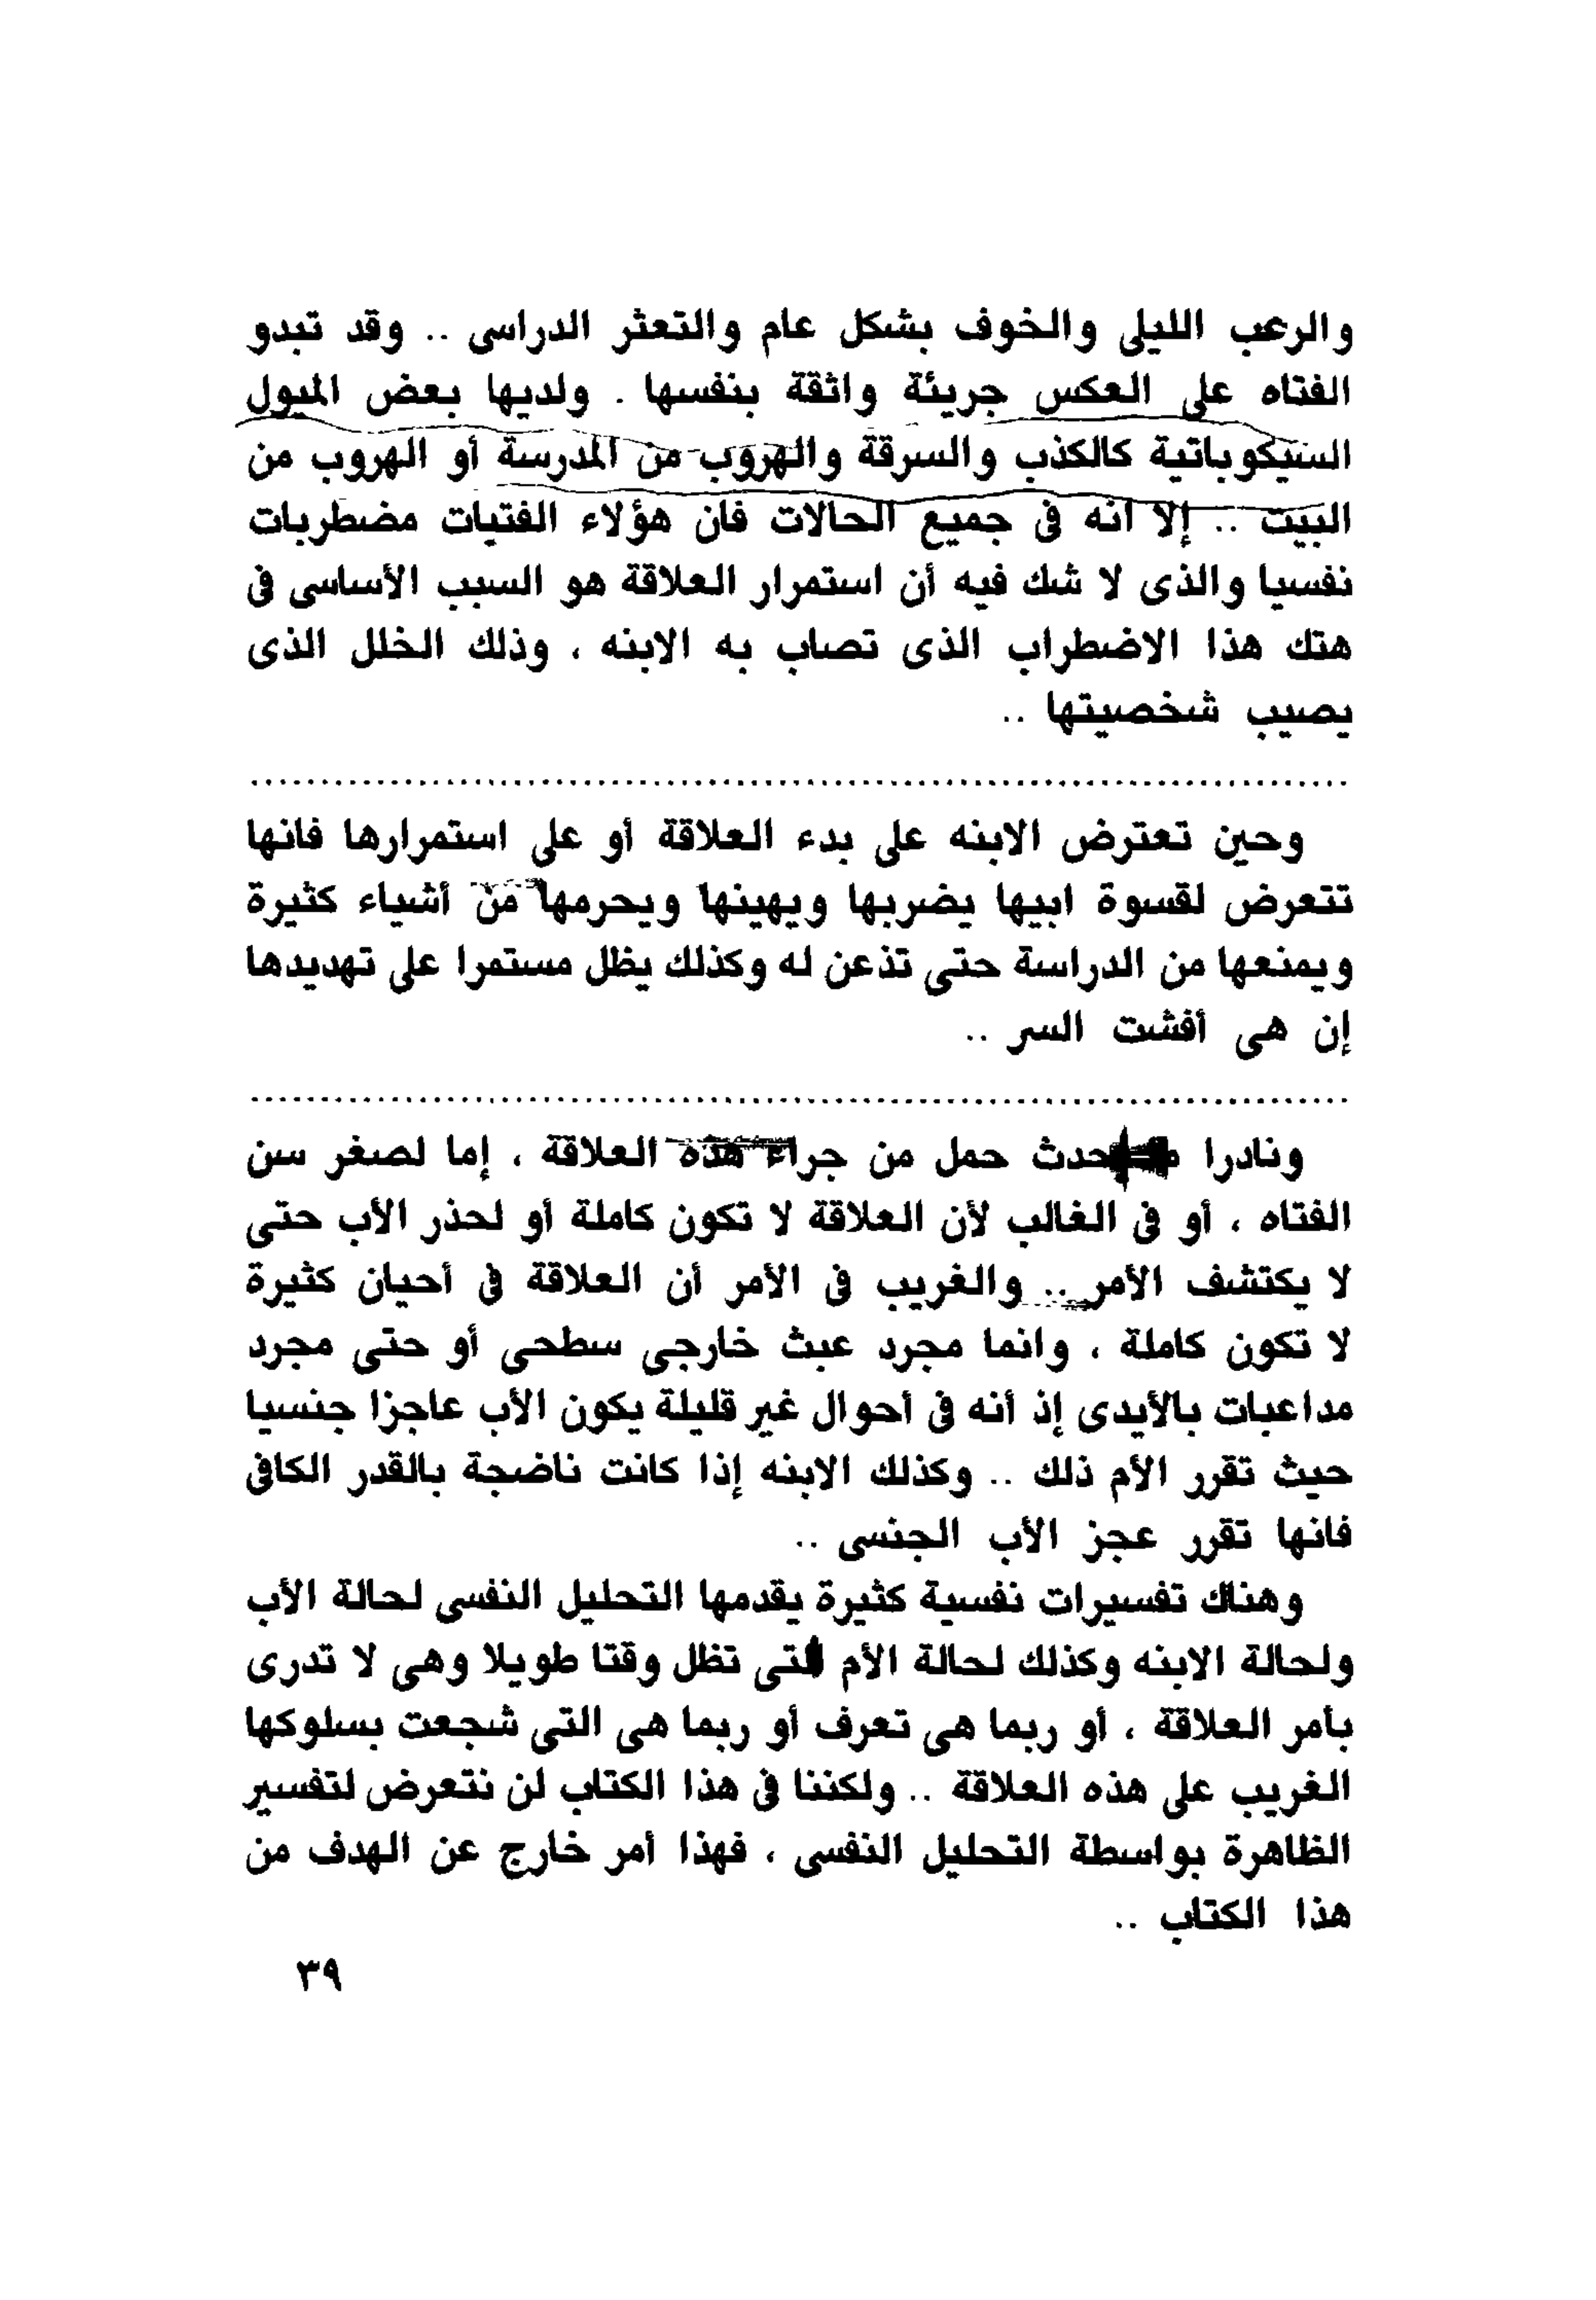 والرعب الليلى والخوف بشكل عام والتعثر الدراسى .. وقد تبدو
الفتاه على العكس جريئة واثقة بنفسها . ولديها بعض الميول
السيكوباتية كالكذب والسرقة والهروب من المدرسة أو الهروب من
البيت .. إلا انه فى جميع الحالات فان هؤلاء الفتيات مضطربات
نفسيا والذى لا شك فيه أن استمرار العلاقة هو السبب الأساسى فى
هتك هذا الاضطراب الذى تصاب به الابنه ، وذلك الخلل الذى
يصيب شخصيتها ..
................................................................................
وحين تعترض الابنه على بدء العلاقة أو على استمرارها فانها
تتعرض لقسوة ابيها يضربها ويهينها ويحرمها من أشياء كثيرة
ويمنعها من الدراسة حتى تذعن له وكذلك يظل مستمرا على تهديدها
إن هى أفشت السر ..
................................................................................
ونادرا حدث حمل من جراء هذه العلاقة ، إما لصغر سن
الفتاه ، أو فى الغالب لأن العلاقة لا تكون كاملة أو لحذر الأب حتى
لا يكتشف الأمر .. والغريب فى الأمر أن العلاقة فى أحيان كثيرة
لا تكون كاملة ، وانما مجرد عبث خارجى سطحى أو حتى مجرد
مداعبات بالأيدى إذ أنه فى أحوال غير قليلة يكون الأب عاجزا جنسيا
حيث تقرر الأم ذلك .. وكذلك الابنه إذا كانت ناضجة بالقدر الكافى
فانها تقرر عجز الأب الجنسى ..
وهناك تفسيرات نفسية كثيرة يقدمها التحليل النفسى لحالة الأب
ولحالة الابنه وكذلك لحالة الأم التى تظل وقتا طويلا وهى لا تدرى
بأمر العلاقة ، أو ربما هى تعرف أو ربما هى التى شجعت بسلوكها
الغريب على هذه العلاقة .. ولكننا فى هذا الكتاب لن نتعرض لتفسير
الظاهرة بواسطة التحليل النفسى ، فهذا أمر خارج عن الهدف من
هذا الكتاب ..
٣٩